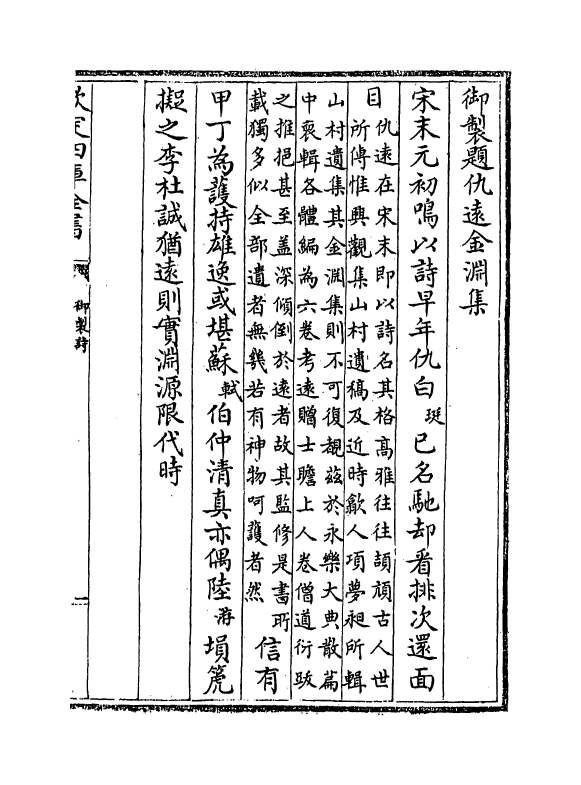 御製題仇遠金淵集
宋末元初鳴以詩早年仇白珽已名馳却看排次還面
目仇遠在宋末即以詩名其格高雅往往頡頏古人世
所傳惟興觀集山村遺稿及近時歙人項夢昶所輯
山村遺集其金淵集則不可復覩兹於永樂大典散篇
中裒輯各體編為六卷考遠贈士瞻上人卷僧道衍跋
之推挹甚至盖深傾倒於遠者故其監修是書所
載獨多似全部遺者無幾若有神物呵護者然信有
甲丁為護持雄逸或堪蘇軾伯仲清真亦偶陸游塤箎
擬之李杜誠猶遠則實淵源限代時
欽定四庫全書
御製詩
一